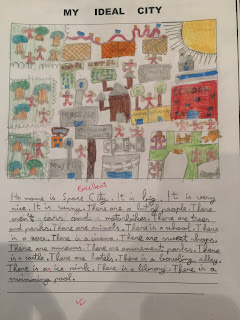 MY IDEAL CITY
Excellent
Its name is Space City. It is big. It is very
nice. It is sunny. There are a lot of people. There
aren't cars and motorbikes. There are trees
and parks. There are animals. There is a school. There
is a zoo. There is a cinema. There are sweet-shops.
There are museums. There are amusement parks. There
is a castle. There are hotels. There is a bowling alley.
There is an ice rink. There is a library. There is a
swimming pool.